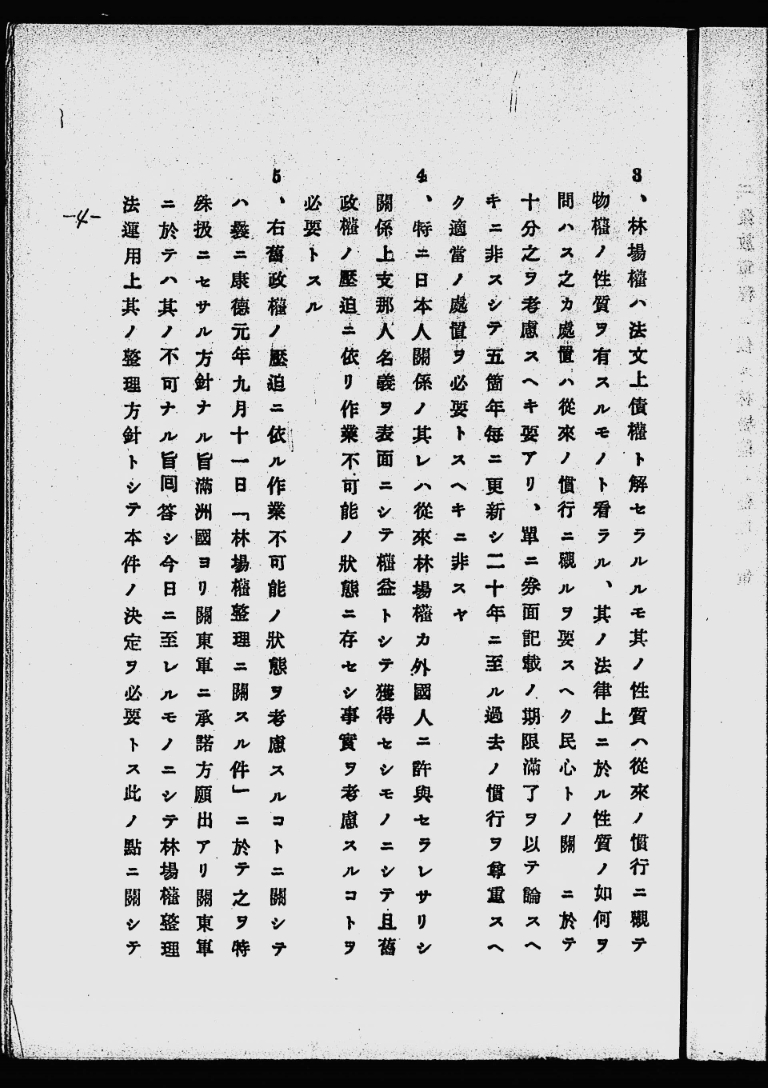 3、林場權ハ法文上債權ト解セラルルモ其ノ性質ハ從來ノ慣行ニ覗テ
物權ノ性質ヲ有スルモノト看ラル、其ノ法律上ニ於ル性質ノ如何ヲ
問ハス之カ處置ハ從來ノ慣行ニ覗ルヲ要スヘク民心トノ關 ニ於テ
十分之ヲ考慮スヘキ要アリ、單ニ券面記載ノ期限滿了ヲ以テ論スヘ
キニ非スシテ五箇年每ニ更新シ二十年ニ至ル過去ノ慣行ヲ尊重スヘ
ク適當ノ處置ヲ必要トスヘキニ非スヤ
4、特ニ日本人關係ノ其レハ從來林場權カ外國人ニ許與セラレサリシ
關係上支那人名義ヲ表面ニシテ權益トシテ獲得セシモノニシテ且舊
政權ノ壓迫ニ依リ作業不可能ノ狀態ニ存セシ事實ヲ考慮スルコトヲ
必要トスル
5、右舊政權ノ壓迫ニ依ル作業不可能ノ狀態ヲ考慮スルコトニ關シテ
ハ曩ニ康德元年九月十一日「林場權整理ニ關スル件」ニ於テ之ヲ特
殊扱ニセサル方針ナル旨滿洲國ヨリ關東軍ニ承諾方願出アリ關東軍
ニ於テハ其ノ不可ナル旨回答シ今日ニ至レルモノニシテ林場權整理
法運用上其ノ整理方針トシテ本件ノ決定ヲ必要トス此ノ點ニ關シテ
-4-